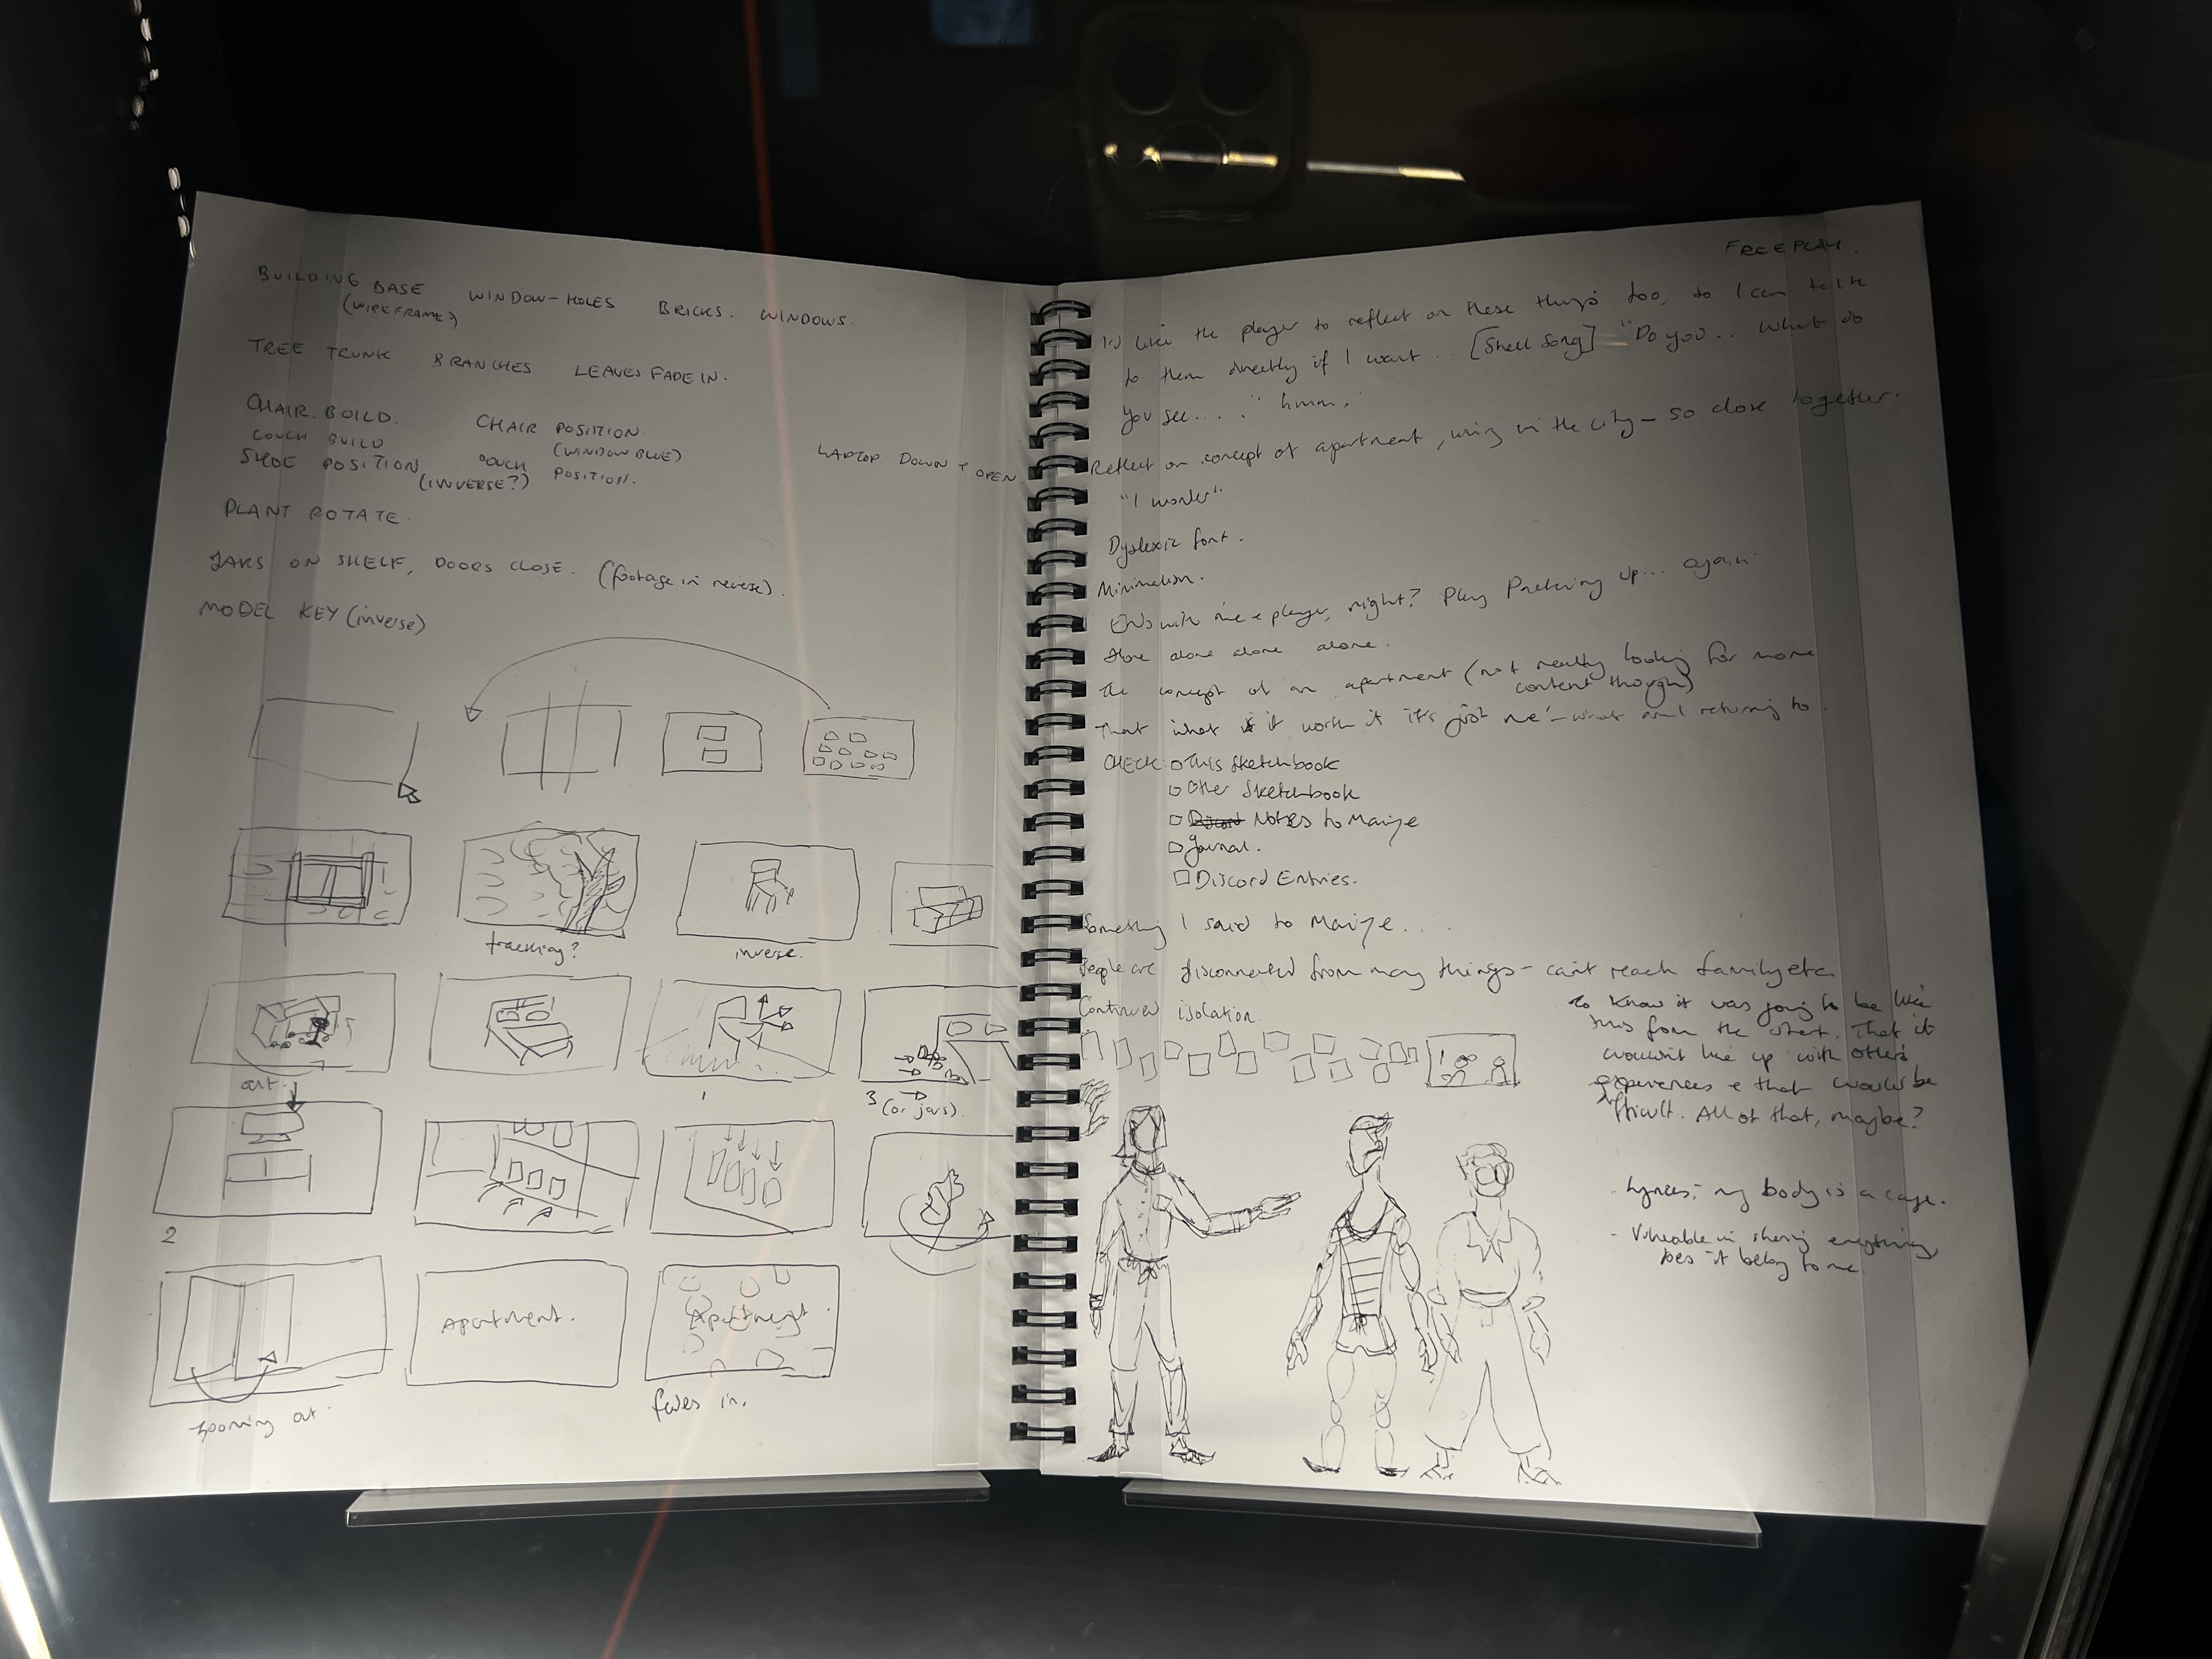 BUILDING BASE WINDOW-HOLES BRICKS. WINDOWS.
(WIREFRAME)
TREE TRUNK BRANCHES LEAVES FADE IN.
CHAIR BUILD. CHAIR POSITION
COUCH BUILD (WINDOW BLUE)
SHOE POSITION COUCH POSITION.
(INVERSE?)
LAPTOP DOWN + OPEN
PLANT ROTATE.
JARS ON SHELF, DOORS CLOSE. (footage in reverse).
MODEL KEY (inverse)
tracking?
inverse.
out
1
3 (or jars)
2
zooming out.
Apartment.
Apartment.
fades in.
FREEPLAY.
I'd like the player to reflect on these things too, so I can talk
to them directly if I want.. [Shell song] "Do you.. What do
you see...." hmm.
Reflect on concept of apartment, living in the city - so close together.
"I wonder"
Dyslexic font.
Minimalism.
Ends with me + player, right? Play up... again
alone alone alone.
The concept of an apartment (not really looking for more
content though)
That what if it worth it it's just me - what am I returning to.
CHECK: This Sketchbook
Other Sketchbook
Notes to Maize
Journal.
Discord Entries.
Something I said to Maize...
People are disconnected from many things - can't reach family etc.
Continued isolation.
to know it was going to be like
this from the start. That it
wouldn't line up with others
experiences & that would be
difficult. All of that, maybe?
- Lyrics; my body is a cage.
- Vulnerable in sharing everything
does it belong to me.